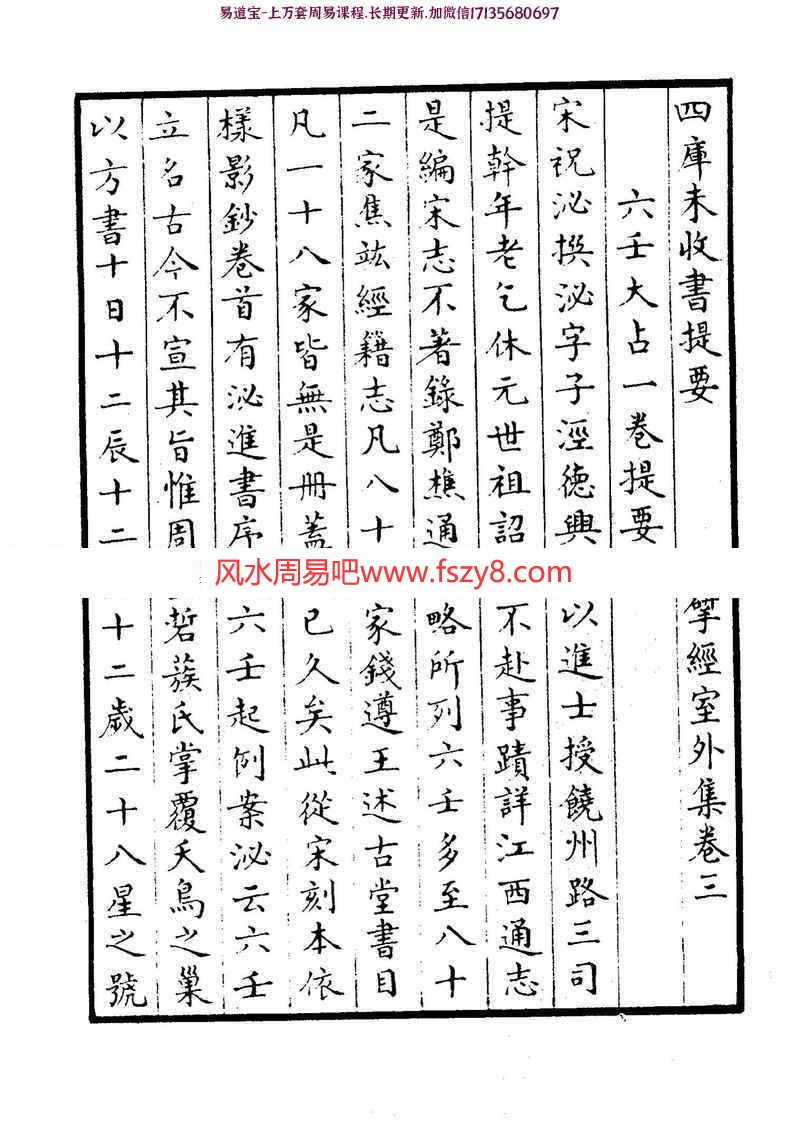 易道宝-上万套周易课程.长期更新.加微信17135680697
四庫未收書提要 揅經室外集卷三
六壬大占一卷提要
宋祝泌撰泌字子涇德興 以進士授饒州路三司
提幹年老乞休元世祖詔 不赴事蹟詳江西通志
是編宋志不著錄鄭樵通 略所列六壬多至八十
二家焦竑經籍志凡八十 家錢遵王述古堂書目
凡一十八家皆無是冊蓋 已久矣此從宋刻本依
樣影鈔卷首有泌進書序 六壬起例案泌云六壬
立名古今不宣其旨惟周 硩蔟氏掌覆夭鳥之巢
以方書十日十二辰十二 十二歲二十八星之號
风水周易吧www.fszy8.com